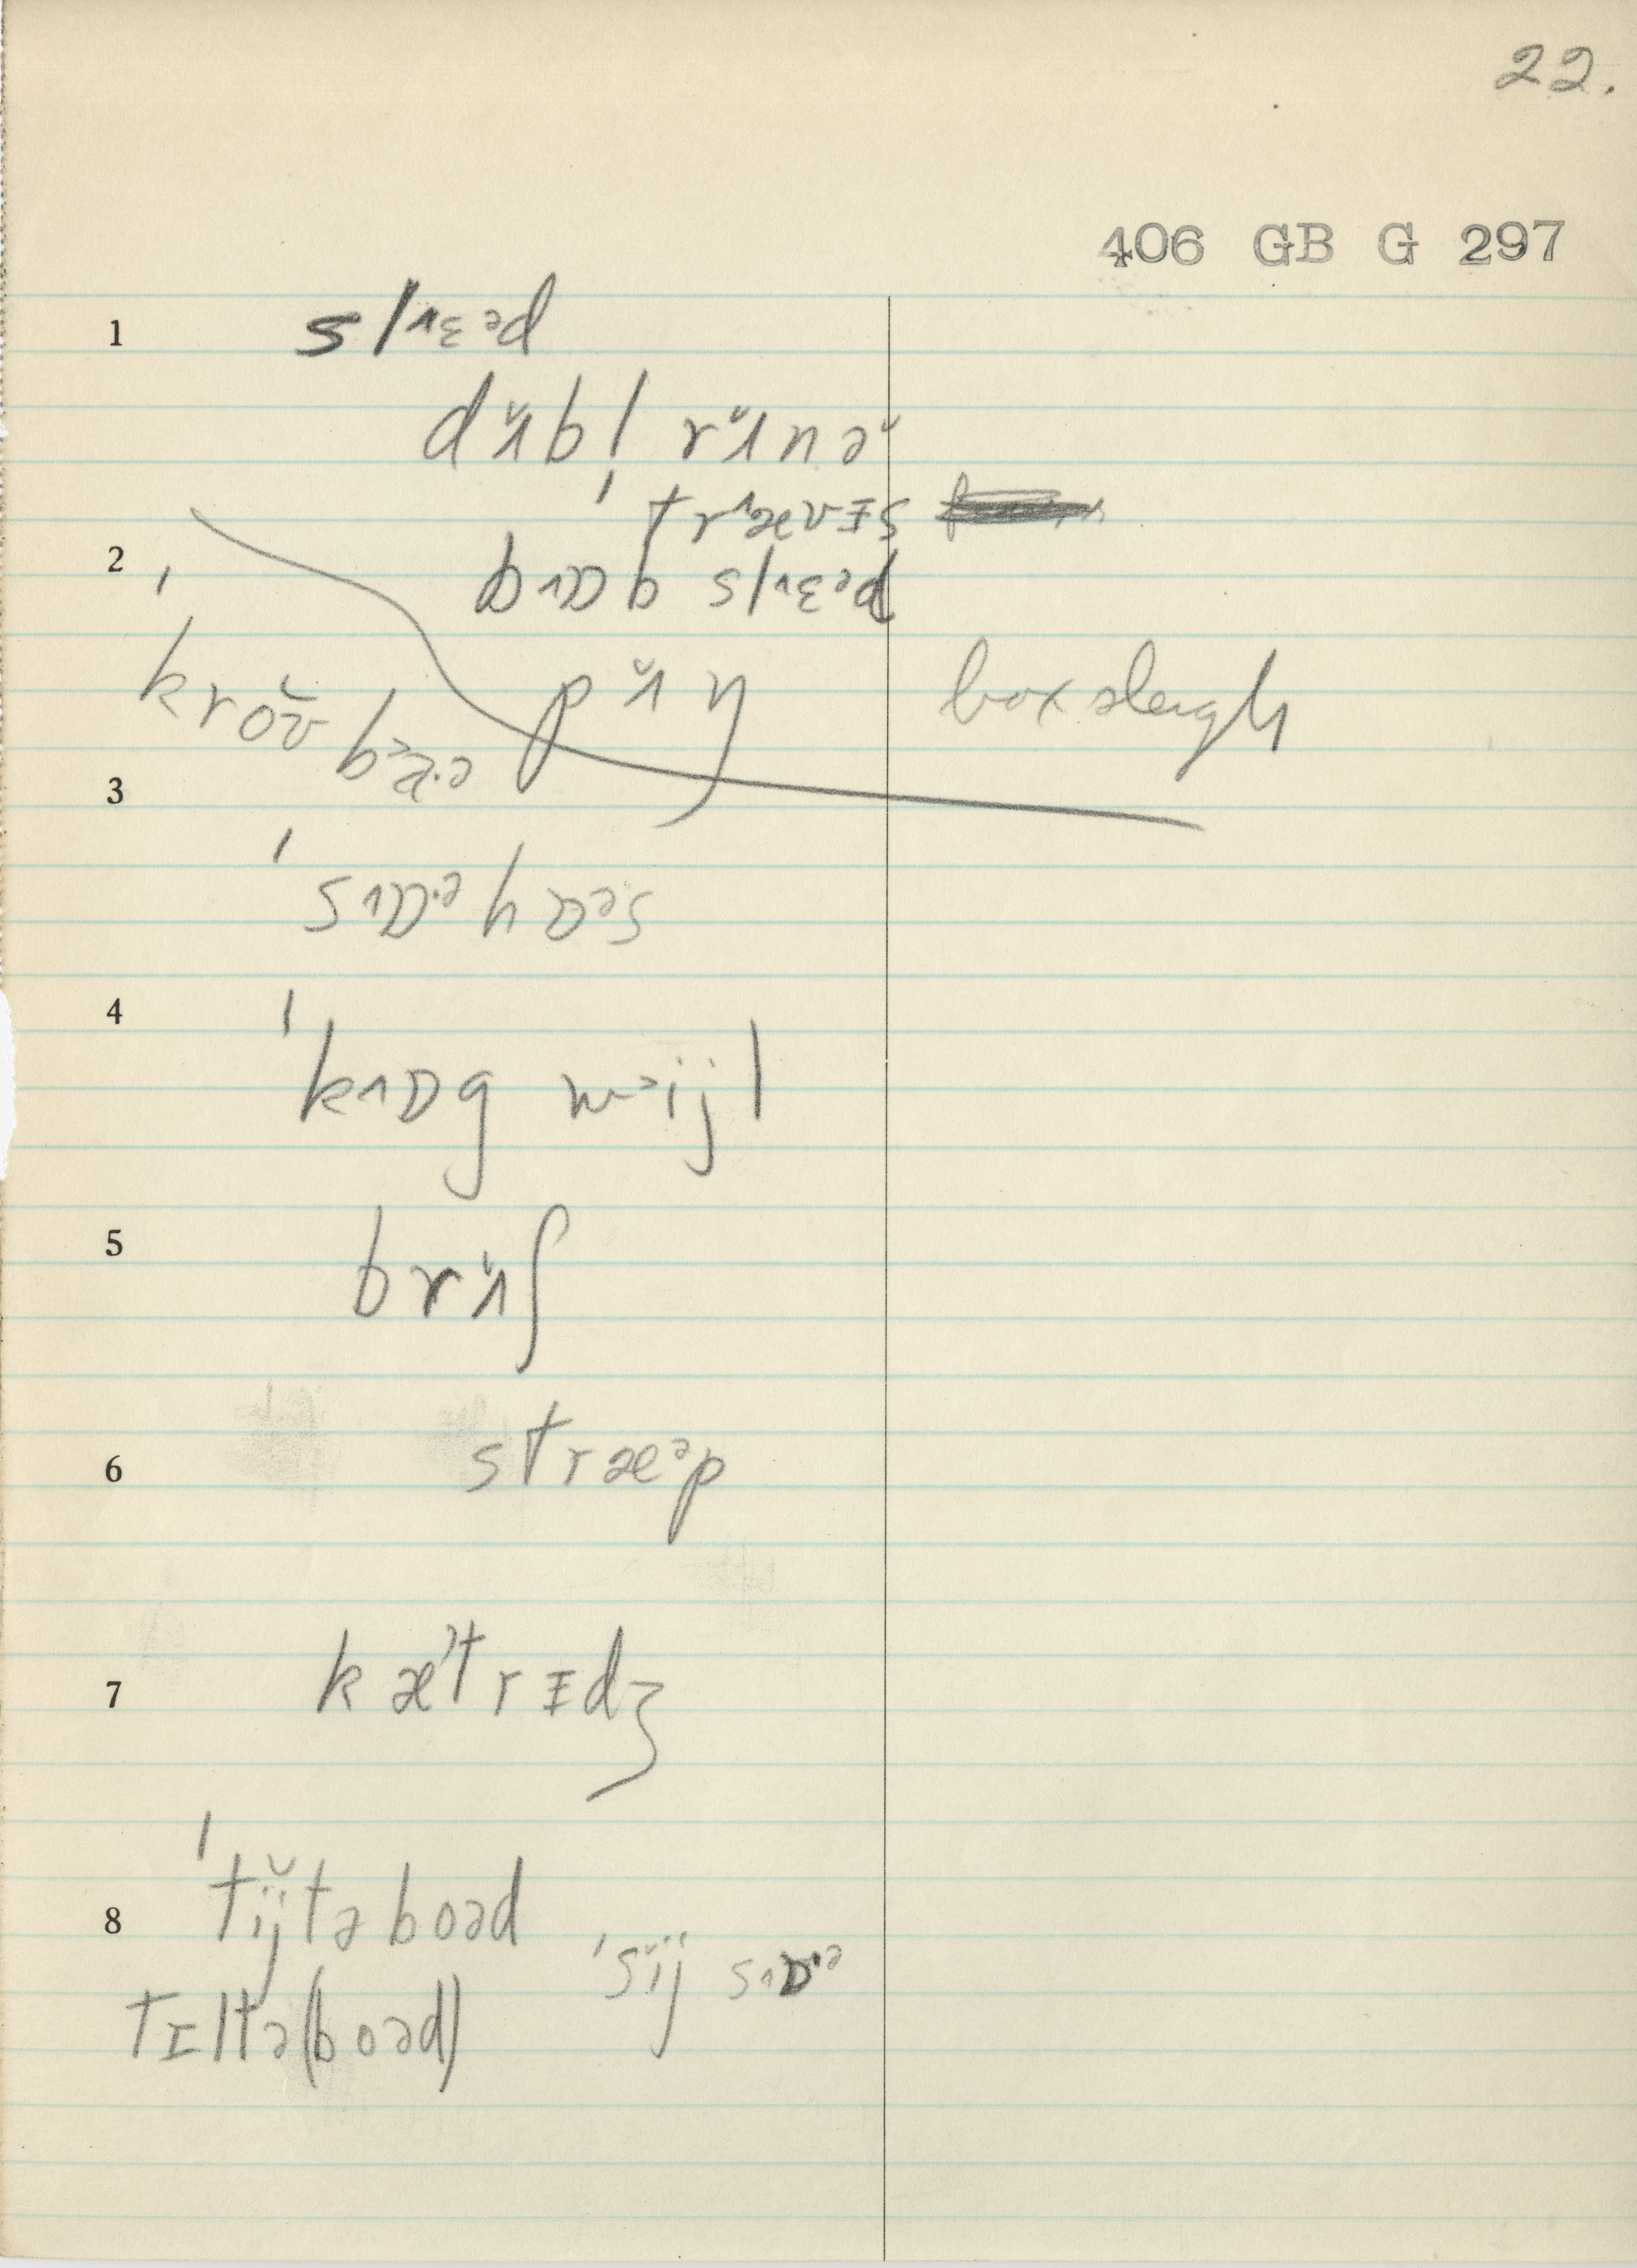 22.
406 GB G 297
1 sl˄ɛᵊd
dʌ̆bl̩ rʌ̆nə̆
ˈtr˄ævɪs
2 b˄ɒb sl˄ɛᵊd
ˈkroʊ̆bɑ˞ɚ pʌ̆ŋ box sleigh
3
ˈs˄ɒ·ᵊ hɒᵊs
4 ˈk˄ɒg wijl
5 brʌ̆ʃ
6 stræᵊp
7 kætrɪdʒ
8 ˈtĭjtə boəd
ˈsĭj s˄ɒ·ᵊ
tɪltə(boəd)